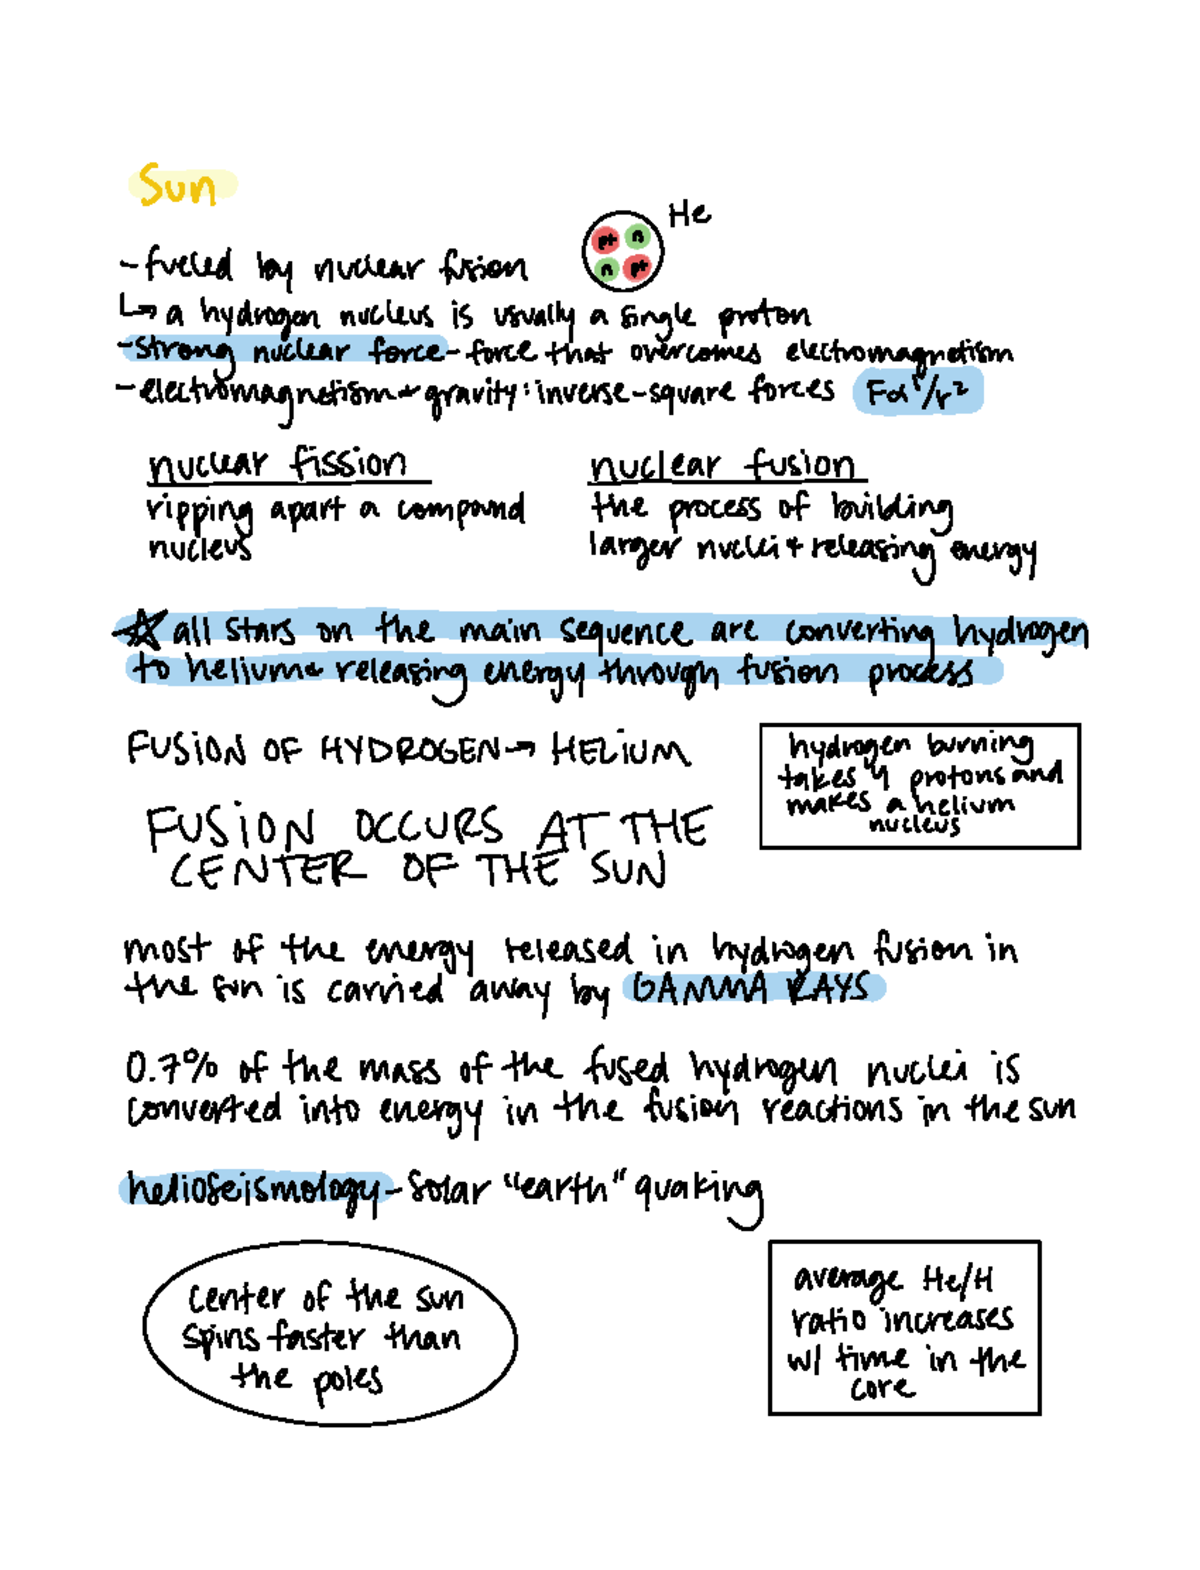 Sun
He
p+ n
n p+
- fueled by nuclear fusion
↳ a hydrogen nucleus is usually a single proton
- strong nuclear force - force that overcomes electromagnetism
- electromagnetism + gravity: inverse-square forces F∝ 1/r²
nuclear fission
ripping apart a compound
nucleus
nuclear fusion
the process of building
larger nuclei + releasing energy
☆ all stars on the main sequence are converting hydrogen
to helium + releasing energy through fusion process
FUSION OF HYDROGEN → HELIUM
hydrogen burning
takes 4 protons and
makes a helium
nucleus
FUSION OCCURS AT THE
CENTER OF THE SUN
most of the energy released in hydrogen fusion in
the sun is carried away by GAMMA RAYS
0.7% of the mass of the fused hydrogen nuclei is
converted into energy in the fusion reactions in the sun
helioseismology - solar "earth" quaking
center of the sun
spins faster than
the poles
average He/H
ratio increases
w/ time in the
core